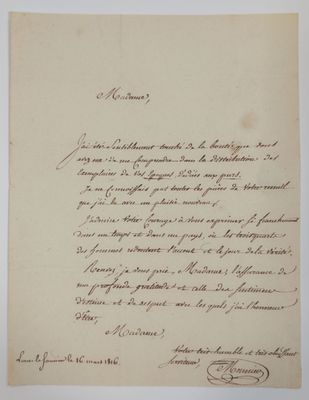 Madame,
J'ai été sensiblement touché de la bonté que vous
avez eu de me comprendre dans la distribution des
exemplaires de vos dédiés aux purs.
Je ne connoissais pas toutes les pièces de votre recueil
que j'ai lu avec un plaisir nouveau.
J'admire votre courage à vous exprimer si franchement
dans un temps et dans un pays, où les trois quarts
des hommes redoutent l'accent et le jour de la vérité.
Recevez je vous prie, Madame, l'assurance de
ma profonde gratitude et celle des sentimens
d'estime et de respect avec lesquels j'ai l'honneur
d'être,
Madame,
Votre très humble et très obéissant
serviteur
le 16 mars 1816.